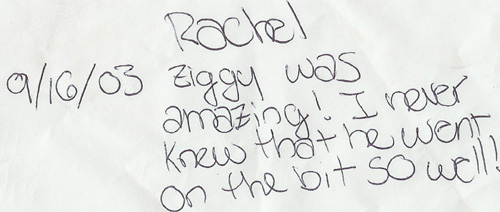 Rachel
9/16/03 Ziggy was
amazing! I never
knew that he went
on the bit so well!